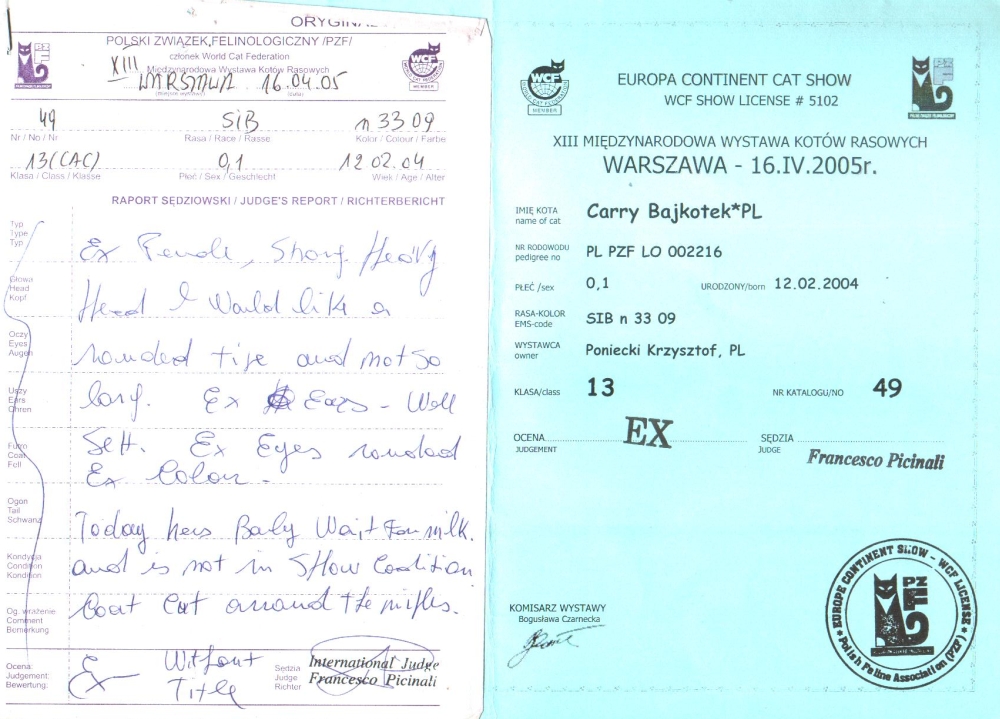 ORYGINA
POLSKI ZWIĄZEK FELINOLOGICZNY /PZF/
członek World Cat Federation
XIII Międzynarodowa Wystawa Kotów Rasowych
WARSZAWA 16.04.05
WCF
MEMBER
49 SIB n 33 09
Nr / No / Nr Rasa / Race / Rasse Kolor / Colour / Farbe
13 (CAC) 0,1 12 02.04
Klasa / Class / Klasse Płeć / Sex / Geschlecht Wiek / Age / Alter
RAPORT SĘDZIOWSKI / JUDGE'S REPORT / RICHTERBERICHT
Typ
Type
Typ
Ex Female, Strong. Heavy
Głowa
Head
Kopf
Head I Would like a
Oczy
Eyes
Augen
rounded tipe and not so
Uszy
Ears
Ohren
long. Ex Ears - Well
Futro
Coat
Fell
Sett. Ex Eyes rounded
Ex Colour.
Ogon
Tail
Schwanz
Today hers Baby Wait For milk.
Kondycja
Condition
Kondition
and is not in SHow Condition
Og. wrażenie
Comment
Bemerkung
Coat Cat around the nipples.
Ocena:
Judgement:
Bewertung:
Ex Without
Title
Sędzia
Judge
Richter
International Judge
Francesco Picinali
WCF
WORLD CAT FEDERATION
MEMBER
EUROPA CONTINENT CAT SHOW
WCF SHOW LICENSE # 5102
XIII MIĘDZYNARODOWA WYSTAWA KOTÓW RASOWYCH
WARSZAWA - 16.IV.2005r.
IMIĘ KOTA
name of cat
Carry Bajkotek*PL
NR RODOWODU
pedigree no
PL PZF LO 002216
PŁEĆ /sex 0,1 URODZONY/born 12.02.2004
RASA-KOLOR
EMS-code
SIB n 33 09
WYSTAWCA
owner
Poniecki Krzysztof, PL
KLASA/class 13 NR KATALOGU/NO 49
OCENA
JUDGEMENT
EX
SĘDZIA
JUDGE
Francesco Picinali
KOMISARZ WYSTAWY
Bogusława Czarnecka
EUROPE CONTINENT SHOW - WCF LICENSE
PZF
Polish Feline Association (PZF)